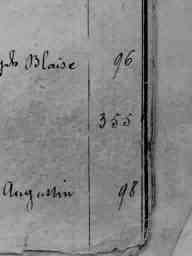 Blaise 96
355
Augustin 98